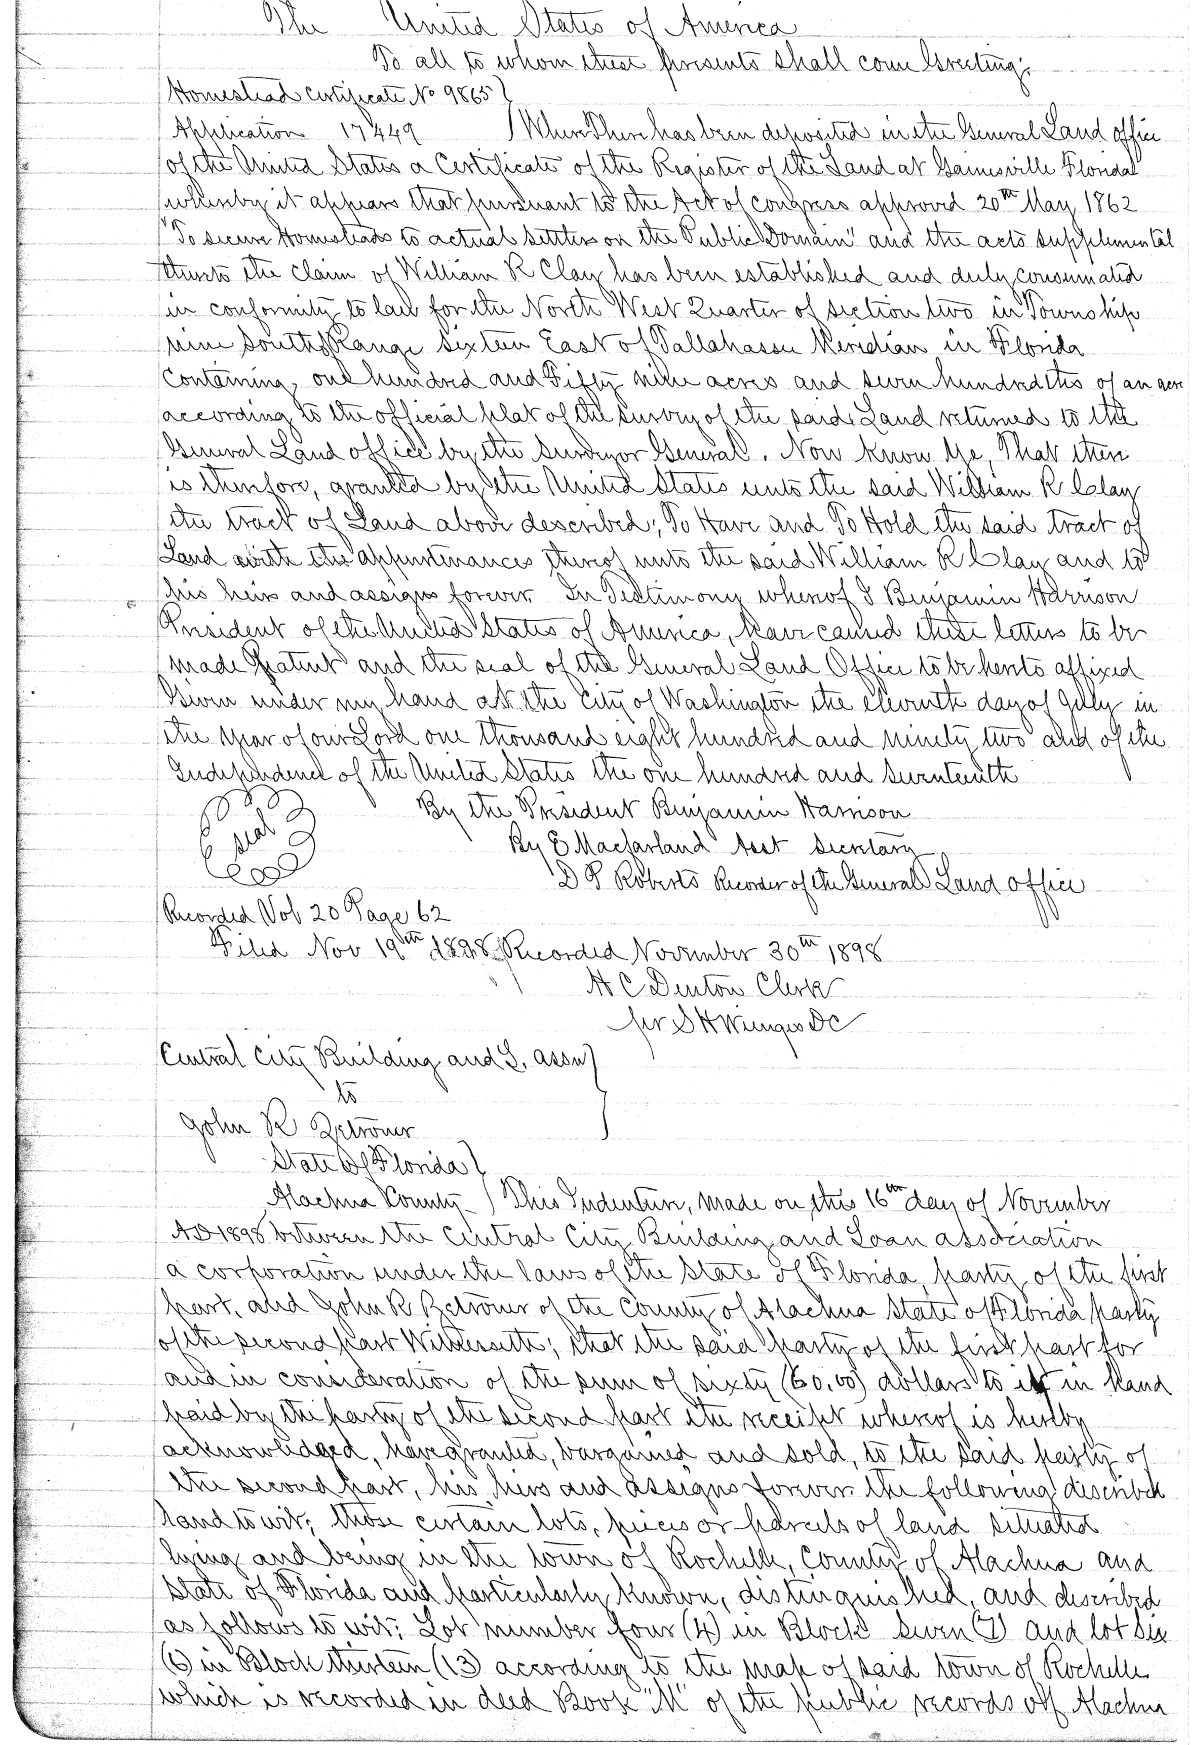 The United States of America
To all to whom these presents shall come Greeting:
Homestead Certificate No 9865 }
Application 17449 } Where There has been deposited in the General Land office
of the United States a Certificate of the Register of the Land at Gainesville Florida
whereby it appears that pursuant to the Act of Congress approved 20th May 1862
"To secure Homesteads to actual settlers on the Public Domain" and the acts supplemental
thereto the claim of William R Clay has been established and duly consumated
in conformity to law for the North West Quarter of section two in Township
nine South Range Sixteen East of Tallahassee Meridian in Florida
Containing, one hundred and Fifty nine acres and seven hundredths of an acre
according to the official plat of the survey of the said Land returned to the
General Land office by the Surveyor General. Now know Ye, That there
is therefore, granted by the United States unto the said William R Clay
the tract of Land above described; To Have and To Hold the said tract of
Land with the appurtenances thereof unto the said William R Clay and to
his heirs and assigns forever In Testimony whereof I Benjamin Harrison
President of the United States of America, have caused these letters to be
made Patent and the seal of the General Land Office to be hereto affixed
Given under my hand at the City of Washington the eleventh day of July in
the year of our Lord one thousand eight hundred and ninety two and of the
Independence of the United States the one hundred and seventeenth
seal By the President Benjamin Harrison
By E Macfarland Asst Secretary
D P Roberts Recorder of the General Land office
Recorded Vol 20 Page 62
Filed Nov 19th 1898 Recorded November 30th 1898
H C Denton Clerk
per S H Wienges DC
Central City Building and L. assn }
to
John R Zetrouer
State of Florida }
Alachua County } This Indenture, made on this 16th day of November
AD 1898 between the Central City Building and Loan association
a corporation under the laws of the State of Florida, party of the first
part, and John R Zetrouer of the County of Alachua State of Florida party
of the second part Witnesseth; that the said party of the first part for
and in consideration of the sum of sixty (60.00) dollars to it in hand
paid by the party of the second part the receipt whereof is hereby
acknowledged, have granted, bargained and sold, to the said party of
the second part, his heirs and assigns forever the following described
land to wit; those certain lots, pieces or parcels of land situated
lying and being in the town of Rochelle, County of Alachua and
State of Florida and particularly known, distinguished, and described
as follows to wit; Lot number four (4) in Block seven (7) and lot six
(6) in Block thirteen (13) according to the map of said town of Rochelle
which is recorded in deed Book "M" of the public records off Alachua